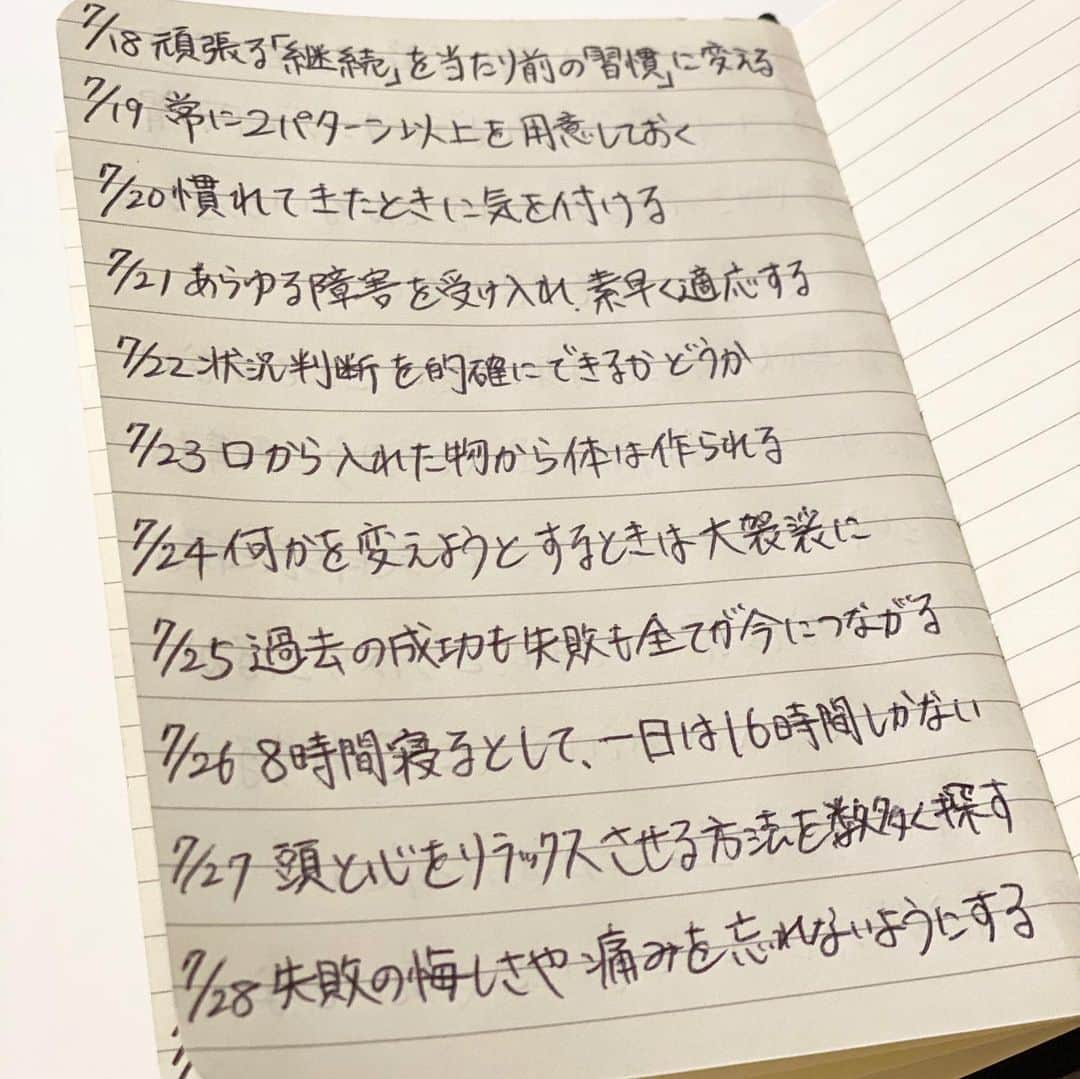 7/18 頑張る「継続」を当たり前の「習慣」に変える
7/19 常に2パターン以上を用意しておく
7/20 慣れてきたときに気を付ける
7/21 あらゆる障害を受け入れ、素早く適応する
7/22 状況判断を的確にできるかどうか
7/23 口から入れた物から体は作られる
7/24 何かを変えようとするときは大袈裟に
7/25 過去の成功も失敗も全てが今につながる
7/26 8時間寝るとして、一日は16時間しかない
7/27 頭と心をリラックスさせる方法を数多く探す
7/28 失敗の悔しさや痛みを忘れないようにする